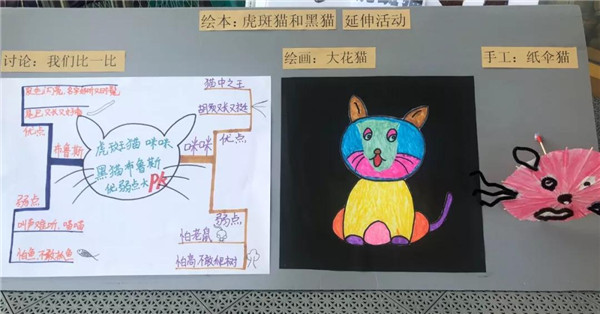 绘本：虎斑猫和黑猫 延伸活动
讨论：我们比一比
绘画：大花猫
手工：纸伞猫
尾巴又长又
优点
布鲁斯
弱点
叫声难听，喵喵
怕鱼不敢抓鱼
虎斑猫 咪咪
黑猫布鲁斯
优弱点大PK
猫中之王
胡须又长又挺
优点
咪咪
弱点
怕老鼠
怕高不敢爬树